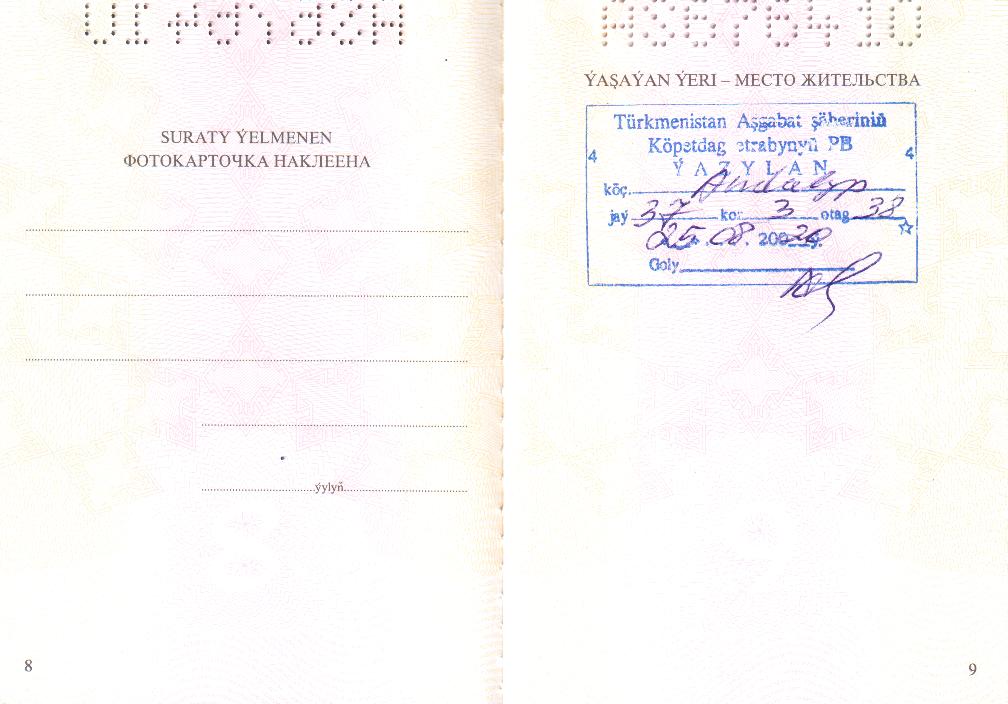 SURATY ÝELMENEN
ФОТОКАРТОЧКА НАКЛЕЕНА
ýylyň
8
ÝAŞAÝAN ÝERI – МЕСТО ЖИТЕЛЬСТВА
Türkmenistan Aşgabat şäheriniň
Köpetdag etrabynyň PB
4 4
ÝAZYLAN
köç. Andalyp
jaý 37 kor. 3 otag 38
25.08. 2020 ý.
Goly
9